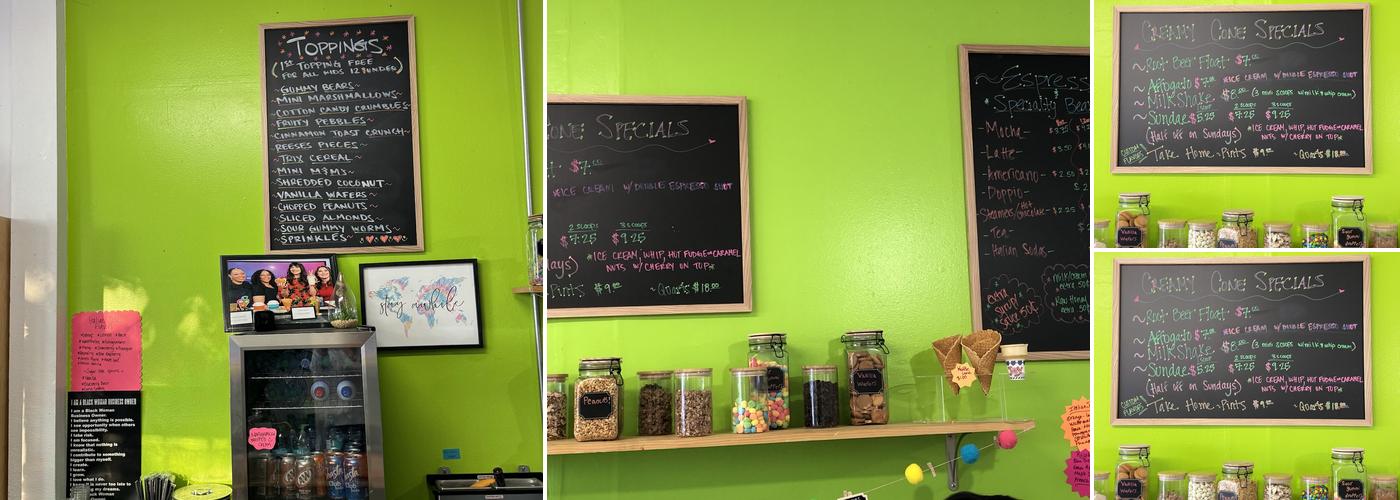 TOPPINGS
(1ST TOPPING FREE
FOR ALL KIDS 12 & UNDER)
~GUMMY BEARS~
~MINI MARSHMALLOWS~
~COTTON CANDY CRUMBLES~
~FRUITY PEBBLES~
~CINNAMON TOAST CRUNCH~
~REESES PIECES~
~TRIX CEREAL~
~MINI M&M'S~
~SHREDDED COCONUT~
~VANILLA WAFERS~
~CHOPPED PEANUTS~
~SLICED ALMONDS~
~SOUR GUMMY WORMS~
~SPRINKLES~
stay awhile
I AM A BLACK WOMAN BUSINESS OWNER
I am a Black Woman
Business Owner.
I believe anything is possible.
I see opportunity when others
see impossibility.
I take risk.
I am focused.
I know that nothing is
unrealistic.
I contribute to something
bigger than myself.
I create.
I learn.
I grow.
I love what I do.
CONE SPECIALS
$7.00
*ICE CREAM W/ DOUBLE ESPRESSO SHOT
2 SCOOPS 3 SCOOPS
$7.25 $9.25
days)
*ICE CREAM, WHIP, HOT FUDGE & CARAMEL
NUTS W/ CHERRY ON TOP*
Pints $9.00 ~Quarts $18.00
~Espress
*Specialty Bea
-Mocha-
-Latte-
-Americano-
-Doppio-
-Steamers/Hot Chocolate- $2.25
-Tea-
-Italian Sodas-
Peanuts!
Vanilla
Wafers
CREAM! CONE SPECIALS
~Root Beer Float $7.00
~Affogato $7.00 *ICE CREAM W/ DOUBLE ESPRESSO SHOT
~MilkShake $8.00 (3 mini scoops w/milk & whip cream)
2 SCOOPS 3 SCOOPS
~Sundae $5.25 $7.25 $9.25
(Half off on Sundays) *ICE CREAM, WHIP, HOT FUDGE & CARAMEL
NUTS W/ CHERRY ON TOP*
Take Home ~Pints $9.00 ~Quarts $18.00
Vanilla
Wafers
CREAM! CONE SPECIALS
~Root Beer Float $7.00
~Affogato $7.00 *ICE CREAM W/ DOUBLE ESPRESSO SHOT
~MilkShake $8.00 (3 mini scoops w/milk & whip cream)
2 SCOOPS 3 SCOOPS
~Sundae $5.25 $7.25 $9.25
(Half off on Sundays) *ICE CREAM, WHIP, HOT FUDGE & CARAMEL
NUTS W/ CHERRY ON TOP*
Take Home ~Pints $9.00 ~Quarts $18.00